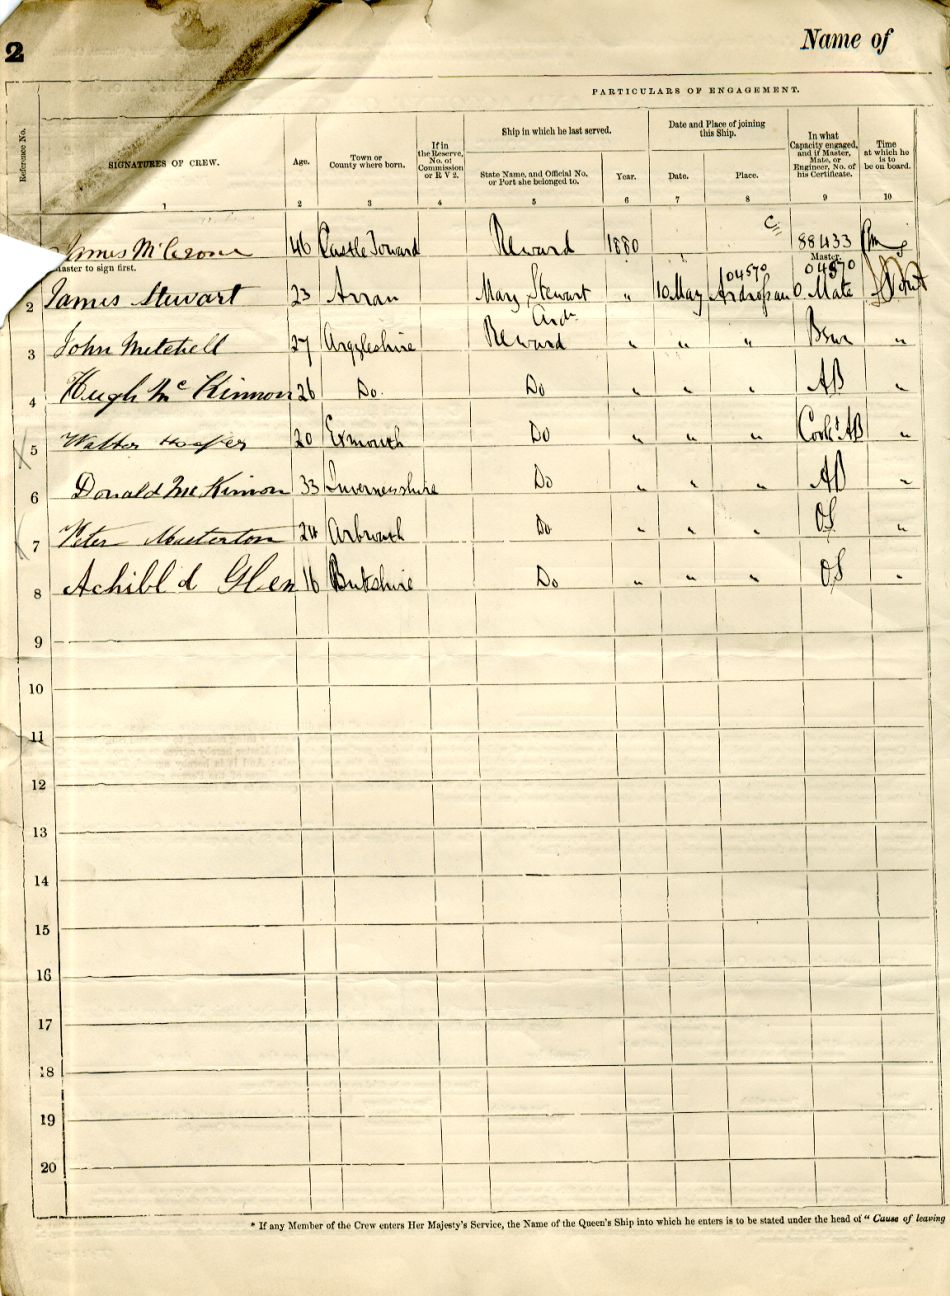 2
Name of
PARTICULARS OF ENGAGEMENT.
Reference No.
SIGNATURES OF CREW.
Age.
Town or
County where born.
If in
the Reserve,
No. of
Commission
or R V 2.
Ship in which he last served.
State Name, and Official No.
or Port she belonged to.
Year.
Date and Place of joining
this Ship.
Date.
Place.
In what
Capacity engaged,
and if Master,
Mate, or
Engineer, No. of
his Certificate.
Time
at which he
is to
be on board.
1 2 3 4 5 6 7 8 9 10
James 46 Castle Toward Reward 1880 88433
Master to sign first.
Master
2 James Stewart 23 Arran Mary Stewart " 10 May Ardrossan O Mate
04570
04570
3 John Mitchell 27 Argyleshire Reward " " " Bsn "
4 Hugh McKinnon 26 Do. Do " " " AB "
5 Walter Hooper 20 Exmouth Do " " " Cook & AB "
6 Donald McKinnon 33 Invernesshire Do " " " AB "
7 Peter Masterton 24 Arbroath Do " " " OS "
8 Achibld Glen 16 Buteshire Do " " " OS "
9
10
11
12
13
14
15
16
17
18
19
20
* If any Member of the Crew enters Her Majesty's Service, the Name of the Queen's Ship into which he enters is to be stated under the head of "Cause of leaving